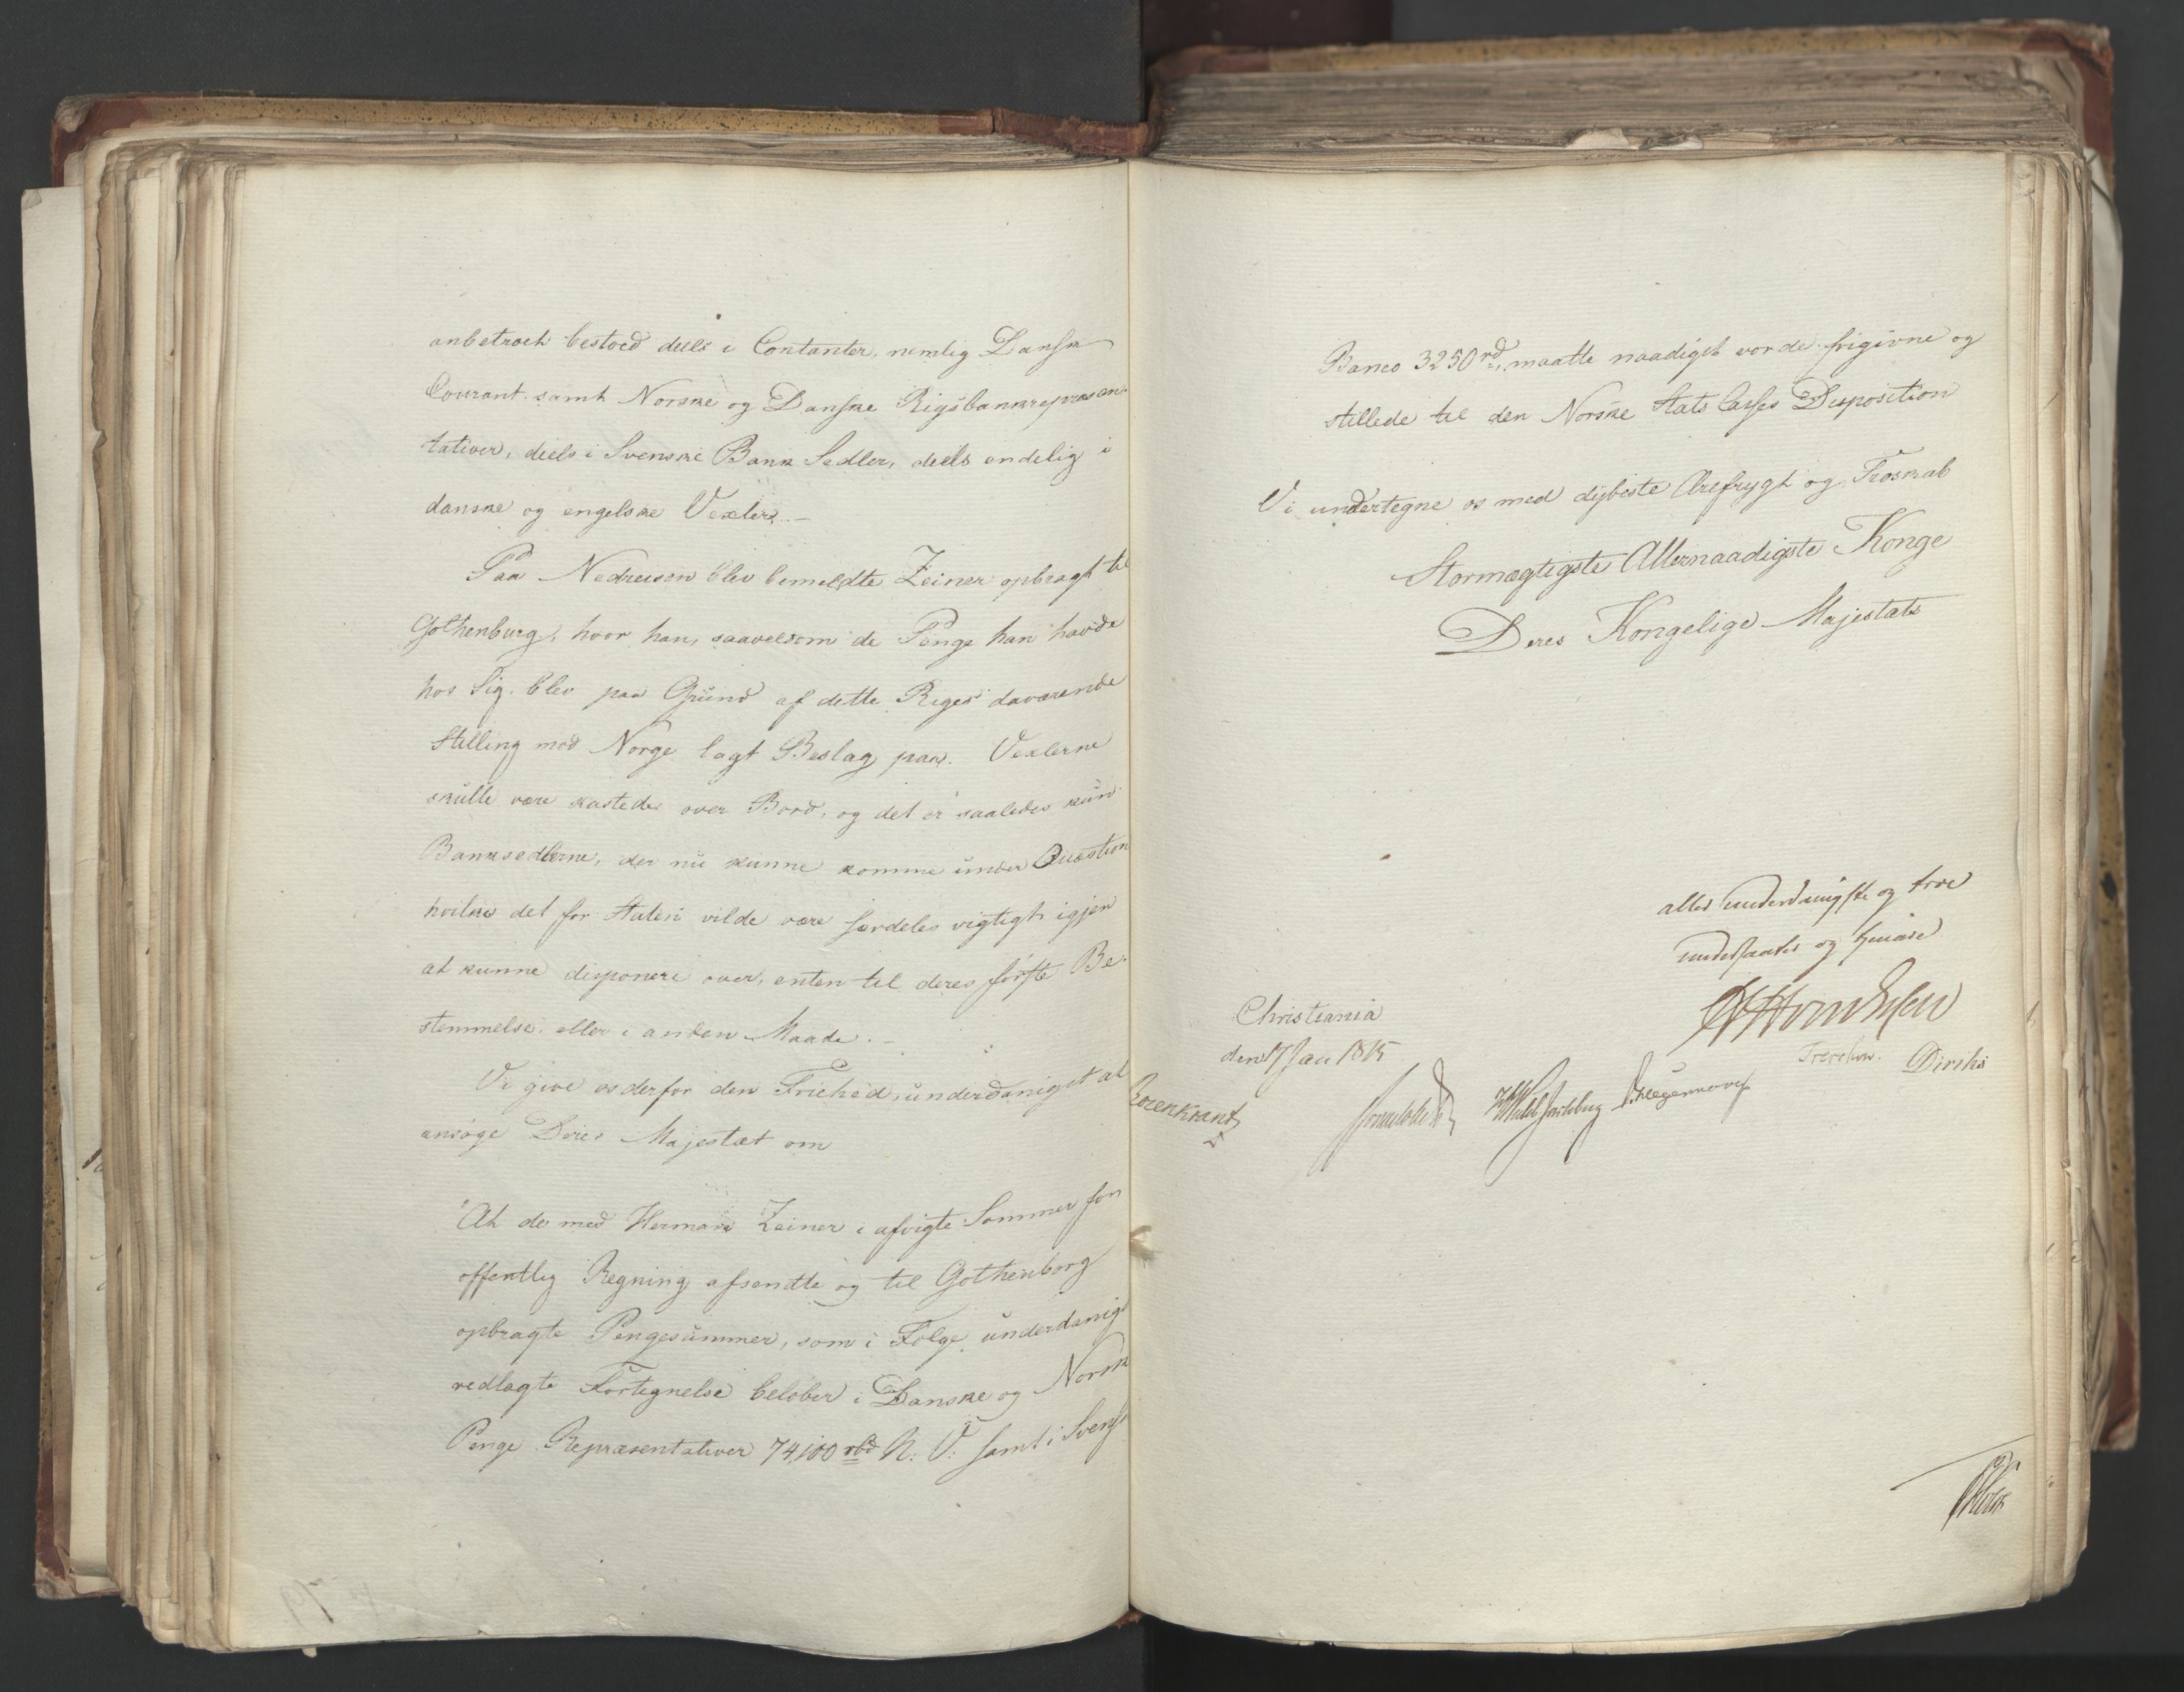 anbetroet bestoed deels i Contanter, nemlig Dansk
Courant samt Norske og Danske Rigsbankrepræsen-
tativer, deels i Svenske Bank Sedler, deels endelig i
danske og engelske Vexler. –
Paa Nedreisen blev bemeldte Zeiner opbragt til
Gothenburg, hvor han, saavelsom de Penge han havde
hos Sig, blev paa Grund af dette Riges daværende
Stilling mod Norge lagt Beslag paa. Vexlerne
skulle være kastede over Bord, og det er saaledes kun
Banksedlerne, der nu kunne komme under Quæstion
hvilke det for Staten vilde være særdeles vigtigt igjen
at kunne disponere over, enten til deres første Be-
stemmelse eller i anden Maade. –
Vi give os derfor den Friehed, underdanigst at
ansøge Deres Majestæt om
"At de med Herman Zeiner i afvigte Sommer for
offentlig Regning afsendte og til Gothenborg
opbragte Pengesummer, som i Følge underdanigst
vedlagte Fortegnelse beløber i Danske og Norske
Penge Repræsentativer 74,100 rbd N. V. samt i Svensk
Banco 3250 rd, maatte naadigst vorde frigivne og
stillede til den Norske Stats Casses Disposition
Vi undertegne os med dybeste Ærefrygt og Troskab
Stormægtigste Allernaadigste Konge
Deres Kongelige Majestæts
allerunderdanigste og troe
undersaatter og tjenere
Christiania
den 17 Jan 1815
Treschow. Diriks
Rosenkrantz Sommerhielm